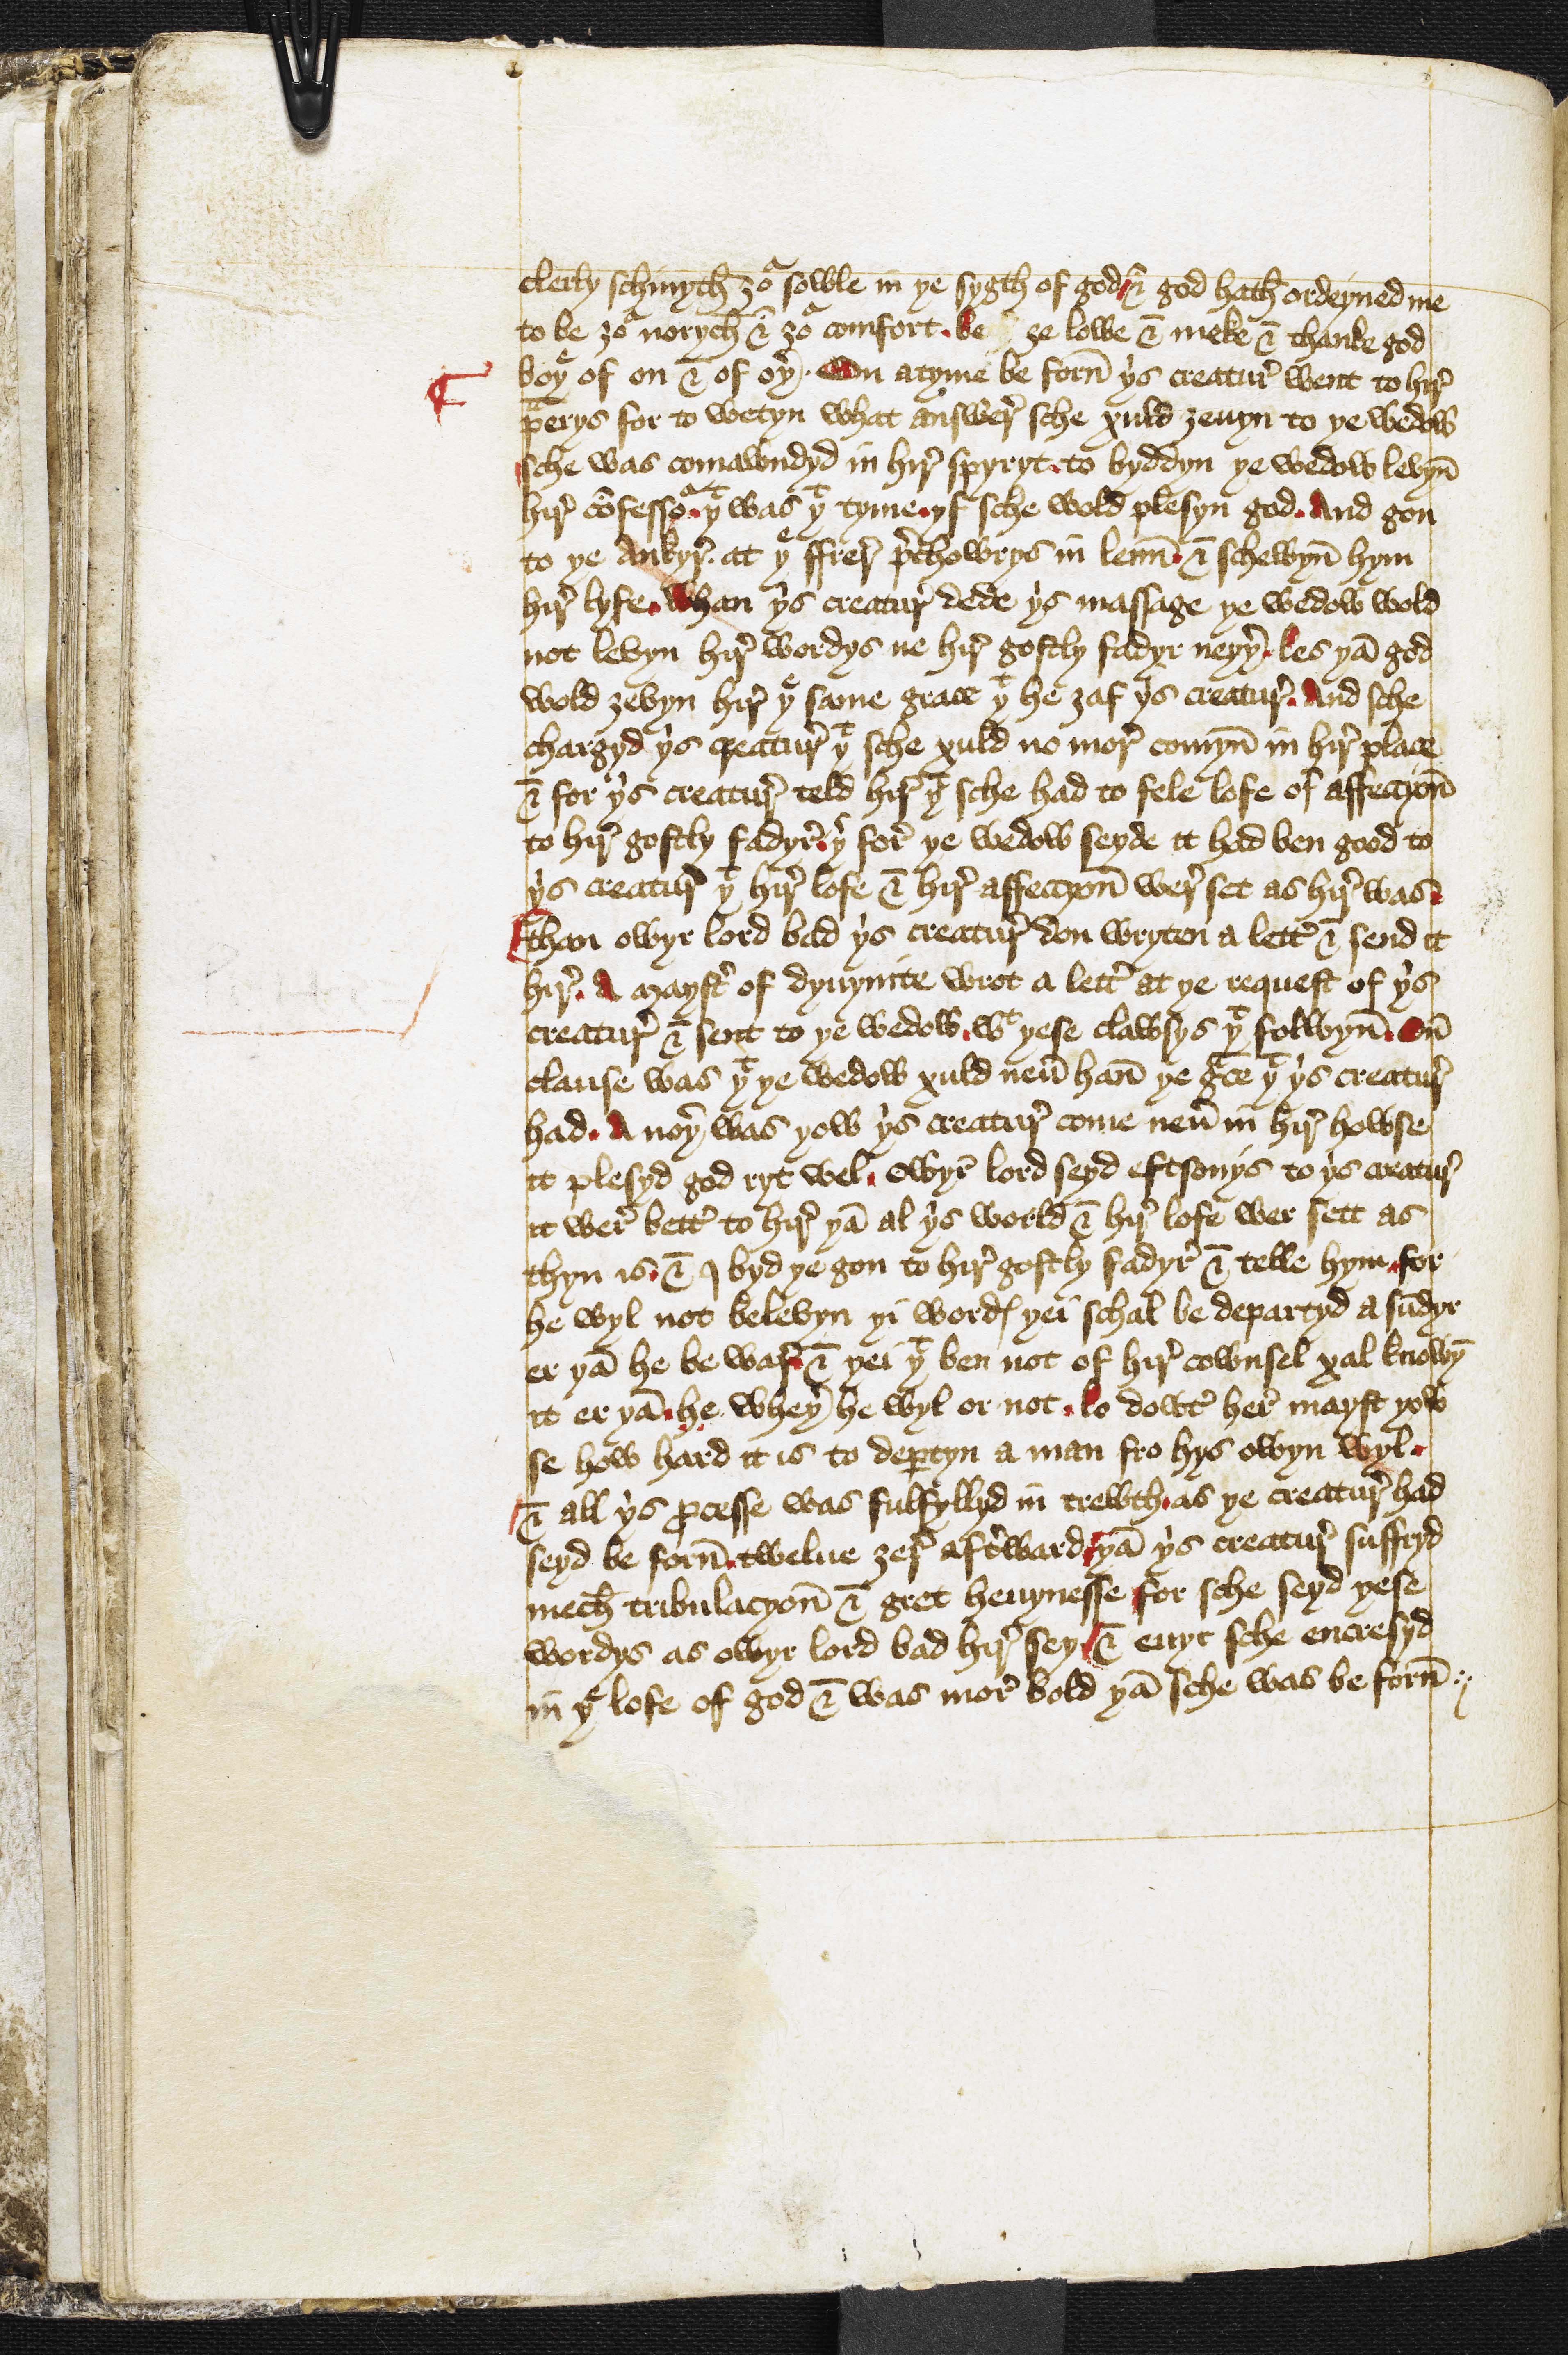 clerly schinyth ȝoʳ sowle in ye sygth of god & god hath ordeyned me
to be ȝoʳ norych & ȝoʳ comfort. be ȝe lowe & meke & thanke god
boyᵉ of on & of oyʳ. On a tyme be forn̄ yⁱs creatur̉ went to hir̉
pᵃerys for to wetyn what answer̉ sche xuld ȝeuyn to ye wedow
sche was comawndyd in hir̉ spyryt. to byddyn ye wedow levyn̄
hir̉ cōfessoʳ. yᵗ was yᵗ tyme. yf sche wold plesyn god. And gon
to ye Ankyr̉. at yᵉ ffrer̉ p̉chowrys in lenn̄. & schewyn̄ hym
hir̉ lyfe. Whan yⁱs creatur̉ dede yⁱs massage ye wedow wold
not levyn hir̉ wordys ne hir̉ gostly fadyr neyʳ. les yā god
wold ȝevyn hir̉ yᵉ same grace yᵗ he ȝaf yⁱs creatur̉. And sche
chargyd yⁱs creatur̉ yᵗ sche xuld no mor̉ comyn̄ in hir̉ place
& for yⁱs creatur̉ teld hir̉ yᵗ sche had to fele lofe of affeccyon̄
to hir̉ gostly fadyr̉. yʳ for̉ ye wedow seyde it had ben good to
yⁱs creatur̉ yᵗ hir̉ lofe & hir̉ affeccyon̄ wer̉ set as hir̉ was.
Than owyr lord bad yⁱs creatur̉ don wryten a lett̉ & send it
hir̉. A mayst̉ of dyuynite wrot a lett̉ at ye request of yⁱs
creatur̉ & sent to ye wedow. wᵗ yese clawsys yᵗ folwyn̄. On̄
clause was yᵗ ye wedow xuld neủ han̄ ye gᵃce yᵗ yⁱs creatur̉
had. A noyʳ was yow yⁱs creatur̉ come neủ in hir̉ howse
it plesyd god ryt wel. Owyr̉ lord seyd eftsonys to yⁱs creatur̉
it wer̉ bett̉ to hir̉ yā al yⁱs world & hir̉ lofe wer sett as
thyn is. & I byd ye gon to hir̉ gostly fadyr̉ & telle hym. for
he wyl not belevyn yi word yei schal be departyd a sūdyr
er yā he be war̉. & yei yᵗ ben not of hir̉ cownsel xal knowyn̄
it er yā. he. wheyʳ he wyl or not. lo dowt̉ her̉ mayst yow
se how hard it is to deꝑtyn a man fro hys owyn wyl.
& all yⁱs ꝓcesse was fulfyllyd in trewth. as ye creatur̉ had
seyd be forn̄. twelue ȝer̉ aft̉ward. yā yⁱs creatur̉ suffryd
mech tribulacyon̄ & gret heuynesse for sche seyd yese
wordys as owyr lord bad hir̉ sey. & euyr sche encresyd
in yᵉ lofe of god & was mor̉ bold yā sche was be forn̄